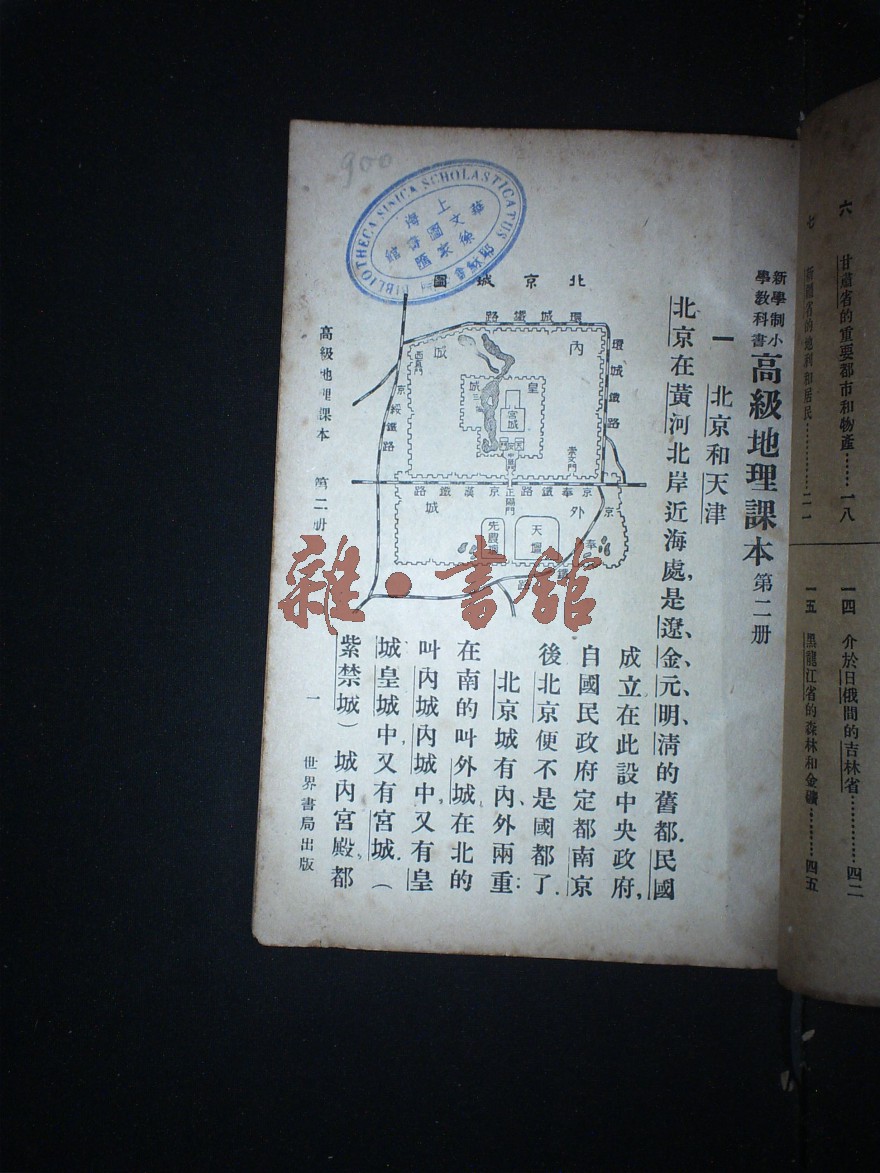 新學制小學教科書高級地理課本第二册
一 北京和天津
北京在黃河北岸近海處,是遼、金、元、明、清的舊都.民國
成立在此設中央政府,
自國民政府定都南京
後北京便不是國都了.
北京城有內、外兩重:
在南的叫外城在北的
叫內城內城中,又有皇
城皇城中,又有宮城.(
紫禁城)城內宮殿,都
北京城圖
環城鐵路
環城鐵路
內
城
皇
城
宮城
西直門
京綏鐵路
崇文門
京奉鐵路
正陽門
京漢鐵路
外
城
天壇
先農壇
京奉鐵路
高級地理課本 第二册
一 世界書局出版
六 甘肅省的重要都市和物產……一八
七 新疆省的地利和居民…………二一
一四 介於日俄間的吉林省…………四二
一五 黑龍江省的森林和金礦………四五
900
BIBLIOTHECA SINICA SCHOLASTICATUS
上海
徐家匯
華文圖書館
雜·書館